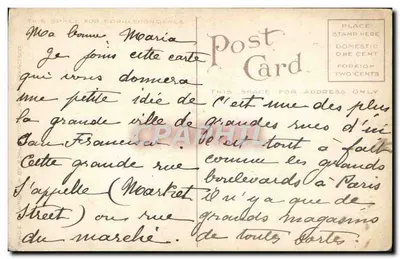 THIS SPACE FOR CORRESPONDENCE
Post
Card
PLACE
STAMP HERE
DOMESTIC
ONE CENT
FOREIGN
TWO CENTS
THIS SPACE FOR ADDRESS ONLY
Ma bonne Maria
Je joins cette carte
qui vous donnera
une petite idée de
la grande ville de
San Francisco.
Cette grande rue
s'appelle (Market
Street) ou rue
du marché.
c'est une des plus
grandes rues d'ici
c'est tout a fait
comme les grands
boulevards à Paris
il n'ya que de
grands magasins
de toutes sortes.